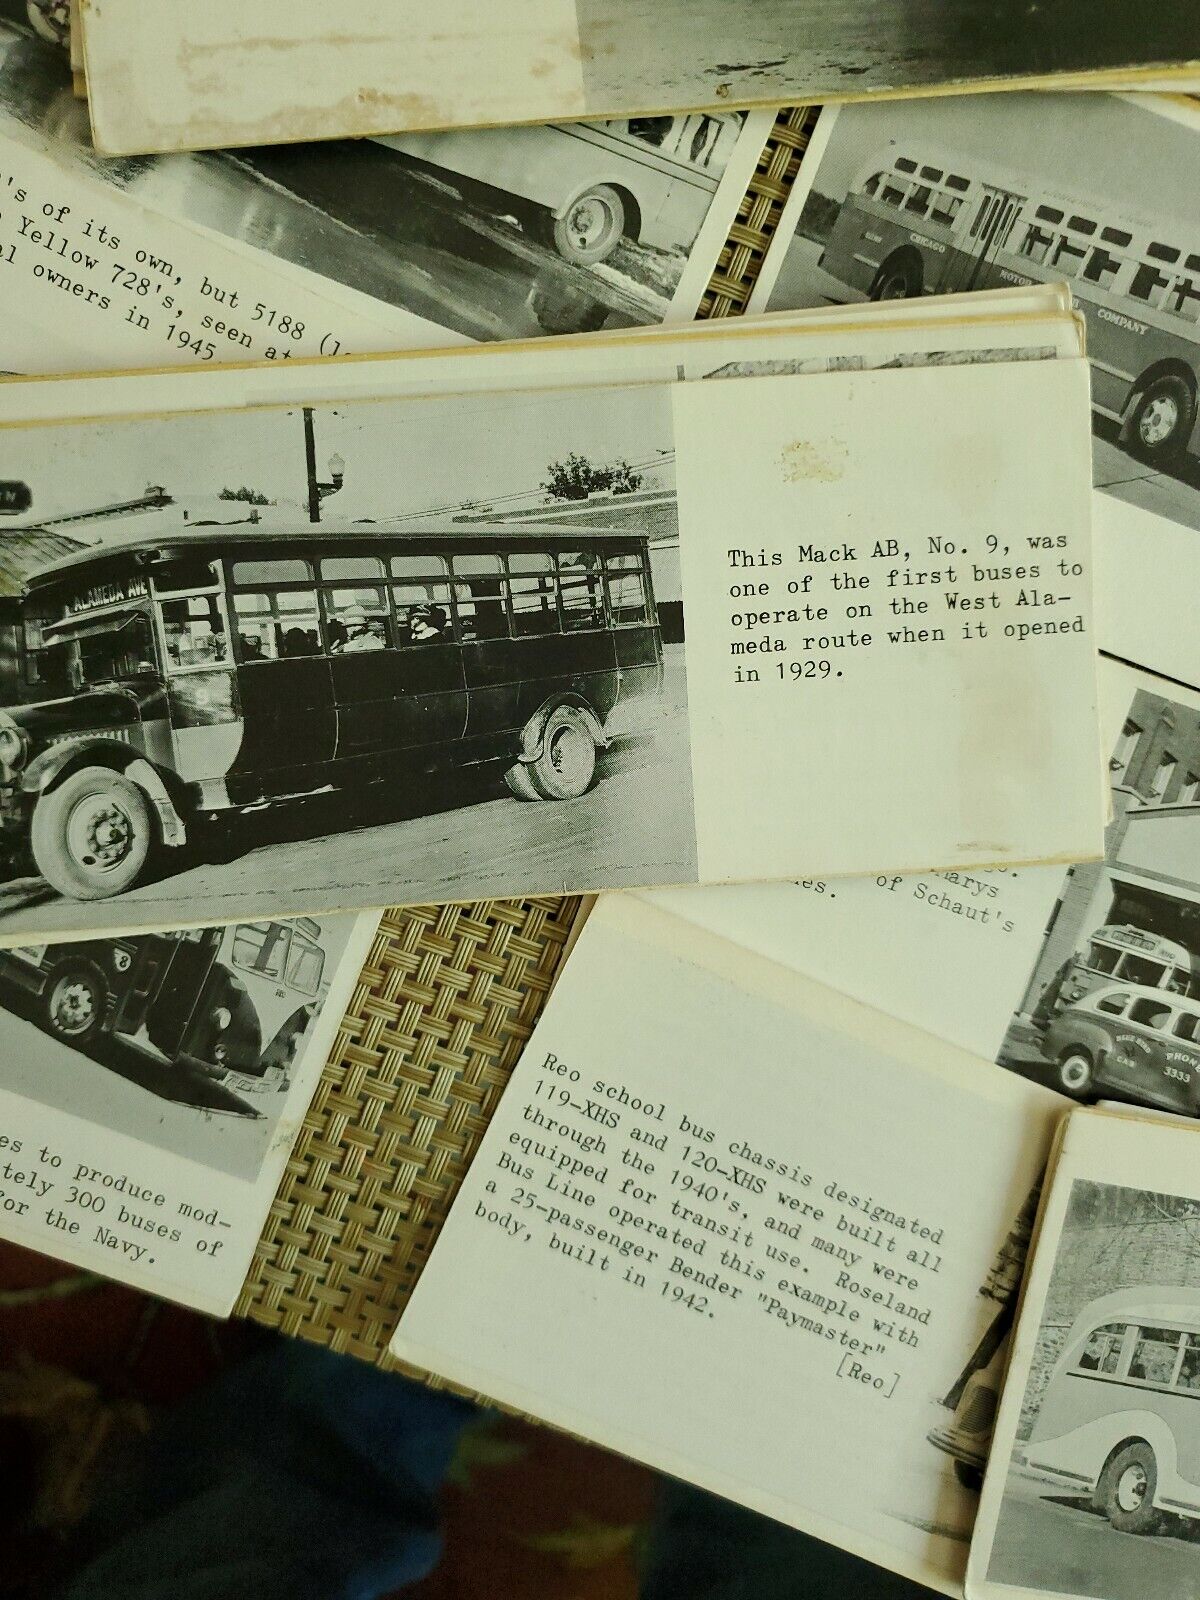 's of its own, but 5188
Yellow 728's, seen at
owners in 1945
CHICAGO
MOTOR
COMPANY
ALAMEDA AVE
9
This Mack AB, No. 9, was
one of the first buses to
operate on the West Ala-
meda route when it opened
in 1929.
of Schaut's
BLUE BIRD
CAB
PHONE
3333
8
es to produce mod-
tely 300 buses of
for the Navy.
Reo school bus chassis designated
119-XHS and 120-XHS were built all
through the 1940's, and many were
equipped for transit use. Roseland
Bus Line operated this example with
a 25-passenger Bender "Paymaster"
body, built in 1942.
[Reo]